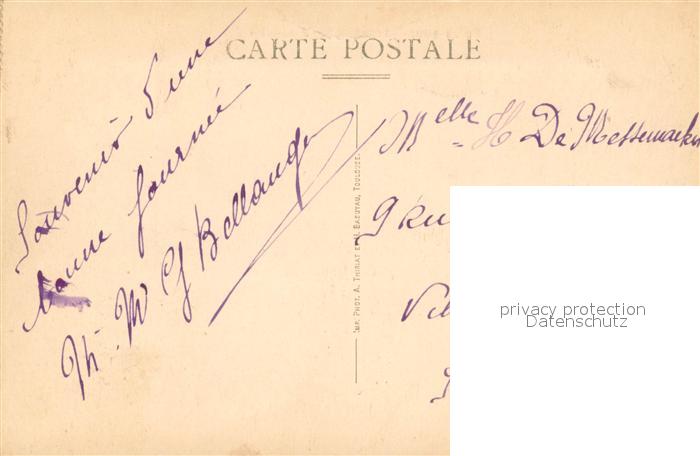 CARTE POSTALE
Souvenir d'une
bonne journée
M. M G Bellanger
IMP. PHOT. A. THIRIAT ET J. BASUYAU, TOULOUSE
Melle H De Messemaeker
9 Ru
privacy protection
Datenschutz